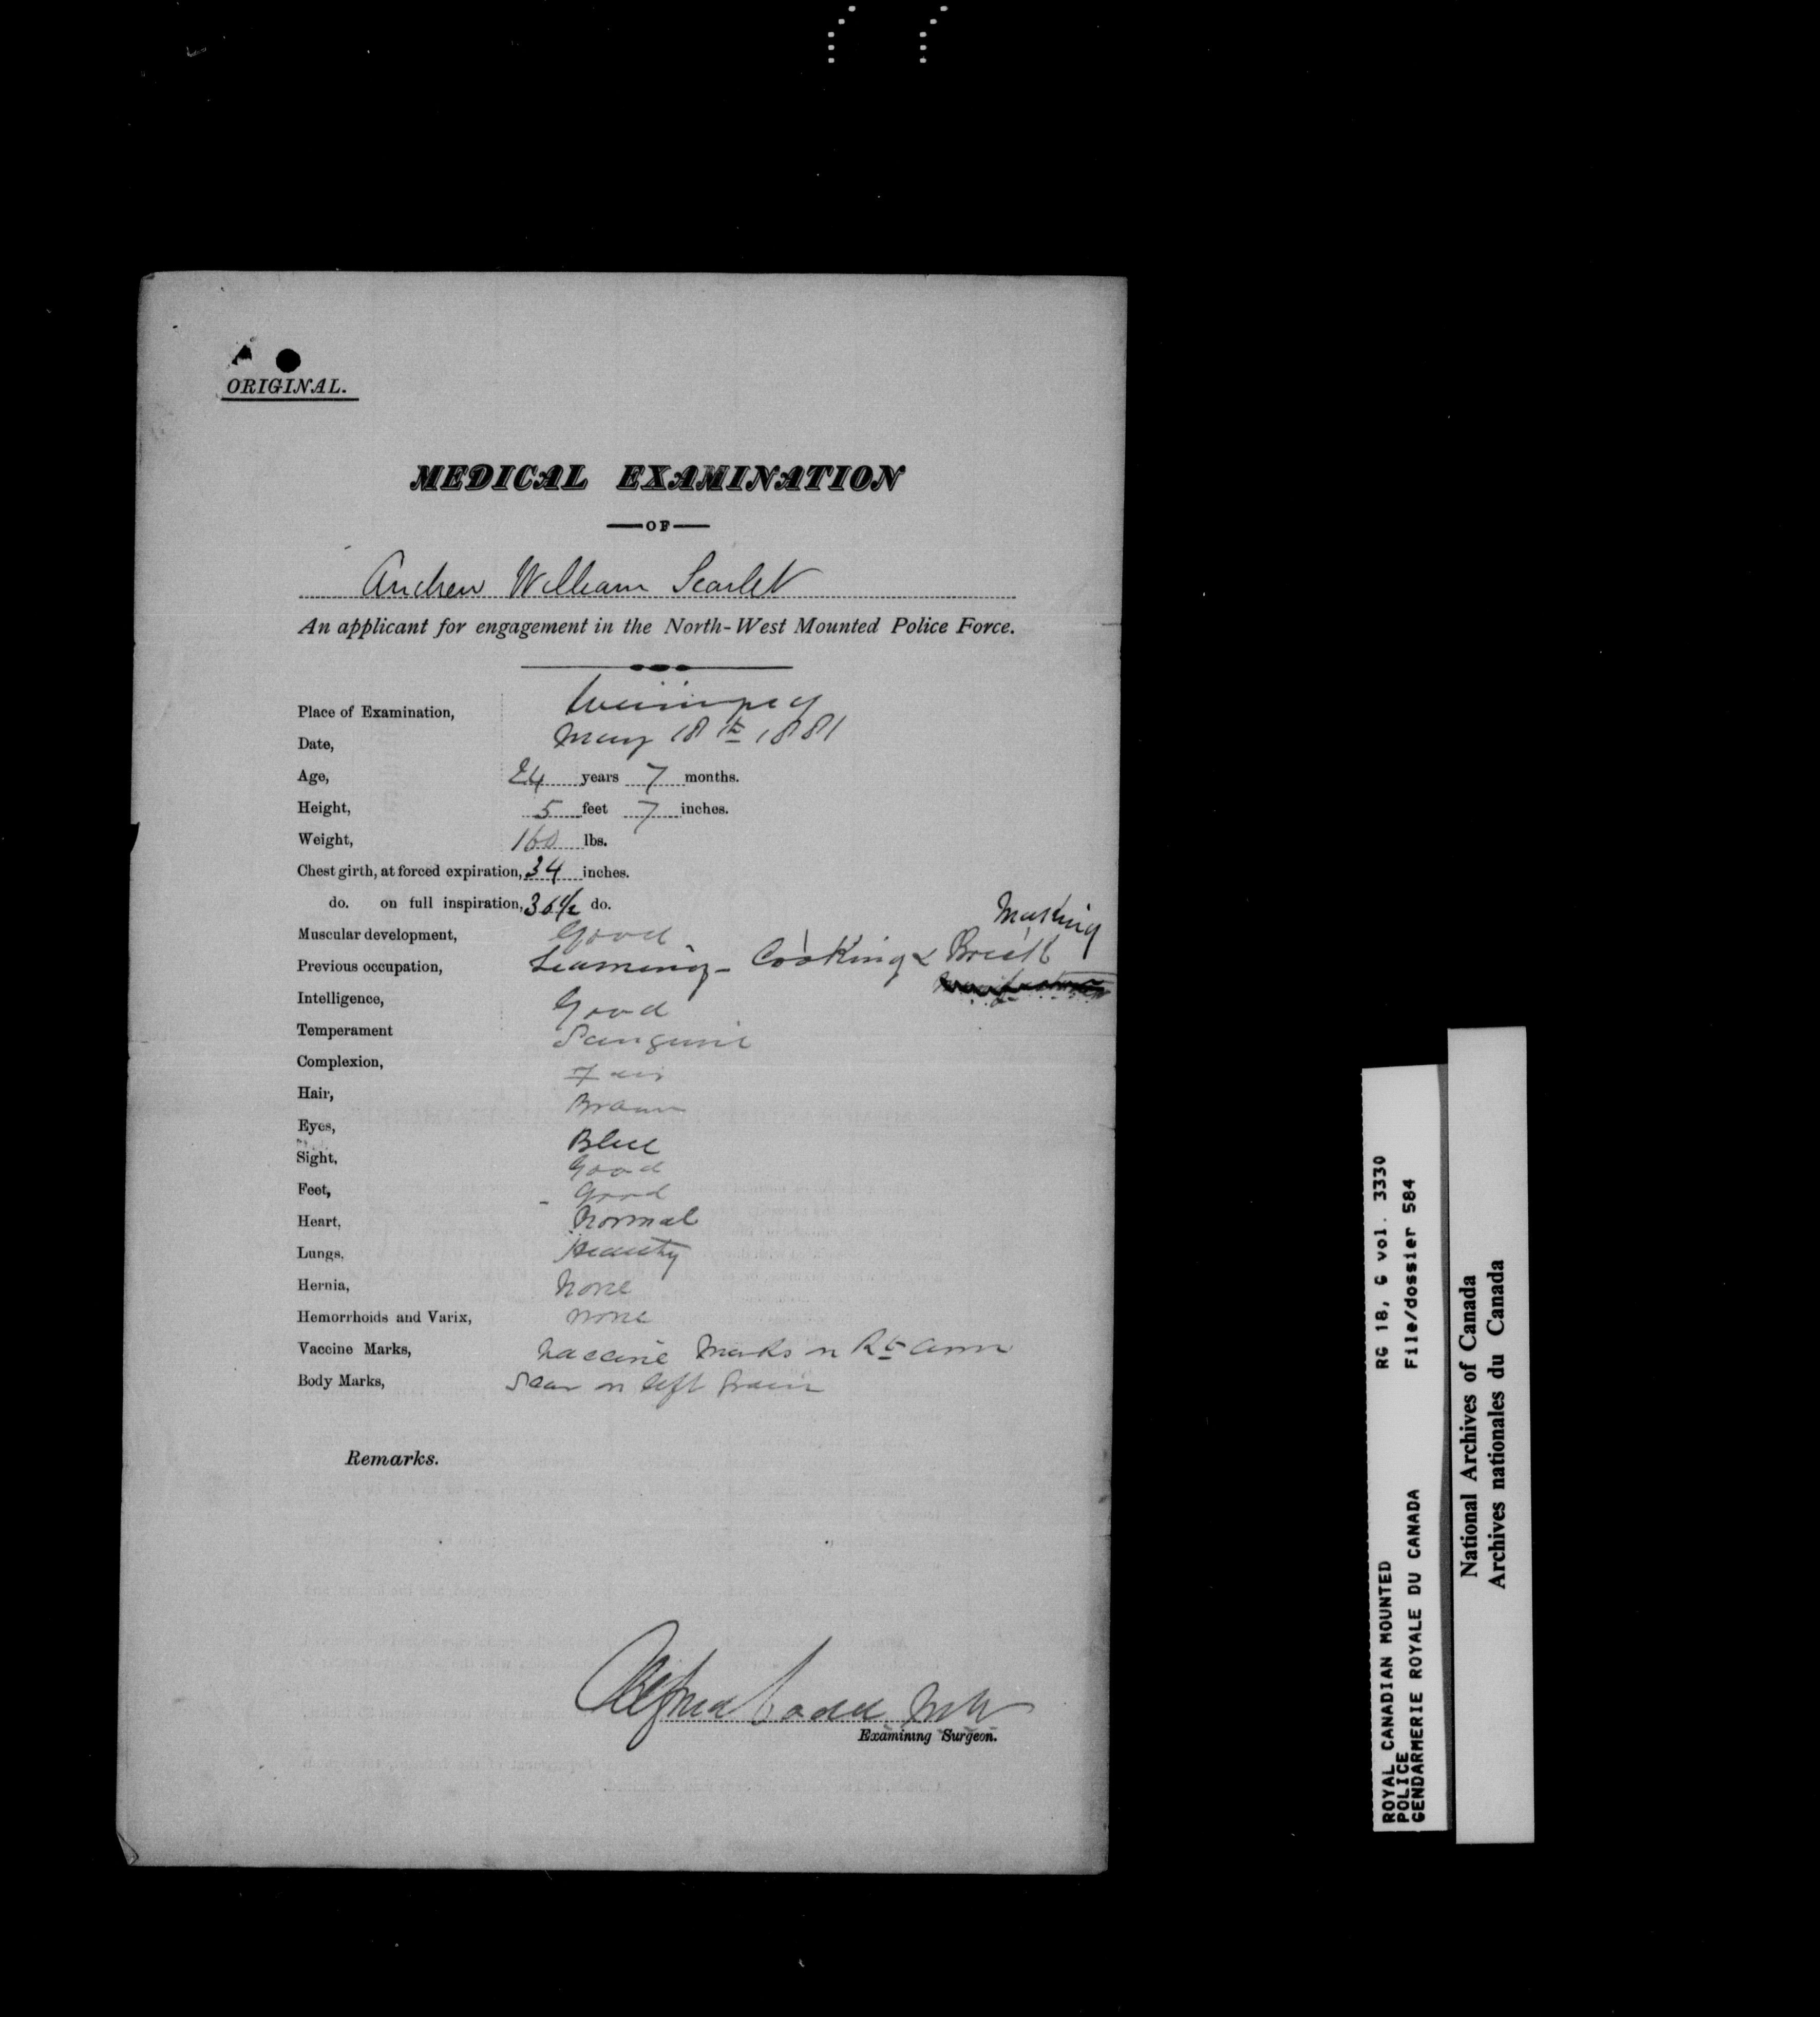 ORIGINAL.
MEDICAL EXAMINATION
OF
Andrew William Scarlet
An applicant for engagement in the North-West Mounted Police Force.
Place of Examination, Winnipeg
Date, May 18th 1881
Age, 24 years 7 months.
Height, 5 feet 7 inches.
Weight, 160 lbs.
Chest girth, at forced expiration, 34 inches.
do. on full inspiration, 36½ do.
Muscular development, Good
Making
Previous occupation, Teaming - Cooking & Brick
Intelligence, Good
Temperament Sanguine
Complexion, Fair
Hair, Brown
Eyes, Blue
Sight, Good
Feet, Good
Heart, Normal
Lungs, Healthy
Hernia, None
Hemorrhoids and Varix, None
Vaccine Marks, Vaccine Marks on Rt arm
Body Marks, Scar on left groin
Remarks.
Alfred Codd MD
Examining Surgeon.
ROYAL CANADIAN MOUNTED RG 18, G vol. 3330
POLICE
GENDARMERIE ROYALE DU CANADA File/dossier 584
National Archives of Canada
Archives nationales du Canada